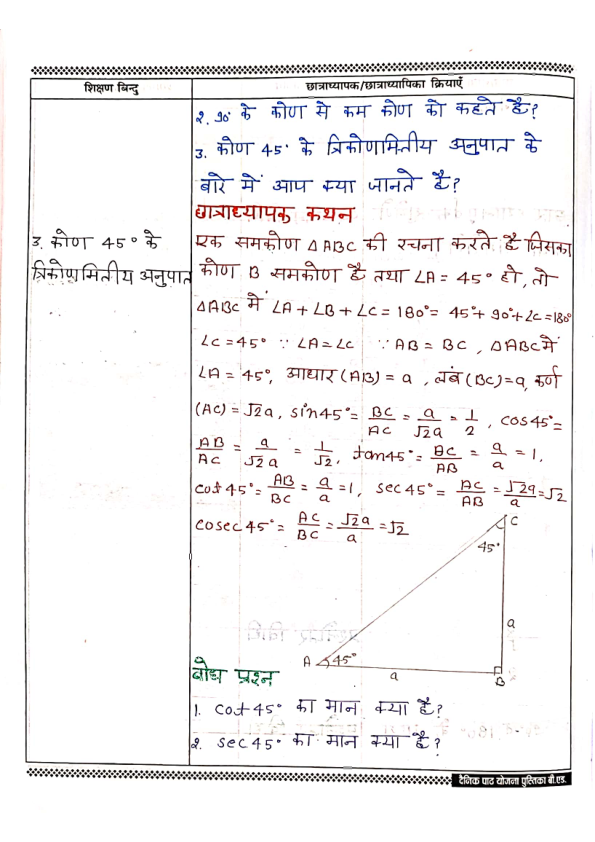 शिक्षण बिन्दु
छात्राध्यापक/छात्राध्यापिका क्रियाएँ
२. 90° के कोण से कम कोण को कहते है?
3. कोण 45° के त्रिकोणमितीय अनुपात के
बारे में आप क्या जानते है?
छात्राध्यापक कथन
3. कोण 45° के
त्रिकोणमितीय अनुपात
एक समकोण ΔABC की रचना करते है जिसका
कोण B समकोण है तथा ∠A = 45° हो, तो
ΔABC में ∠A + ∠B + ∠C = 180° = 45° + 90° + ∠C = 180°
∠C = 45° ∵ ∠A = ∠C ∵ AB = BC , ΔABC में
∠A = 45°, आधार (AB) = a , लंब (BC) = a, कर्ण
(AC) = √2a, sin45° = BC/AC = a/√2a = 1/2 , cos45° =
AB/AC = a/√2a = 1/√2, tan45° = BC/AB = a/a = 1,
cot45° = AB/BC = a/a = 1, sec45° = AC/AB = √2a/a = √2
cosec45° = AC/BC = √2a/a = √2
C
45°
a
A 45°
a
B
बोध प्रश्न
1. cot45° का मान क्या है?
२. sec45° का मान क्या है?
दैनिक पाठ योजना पुस्तिका बी.एड.